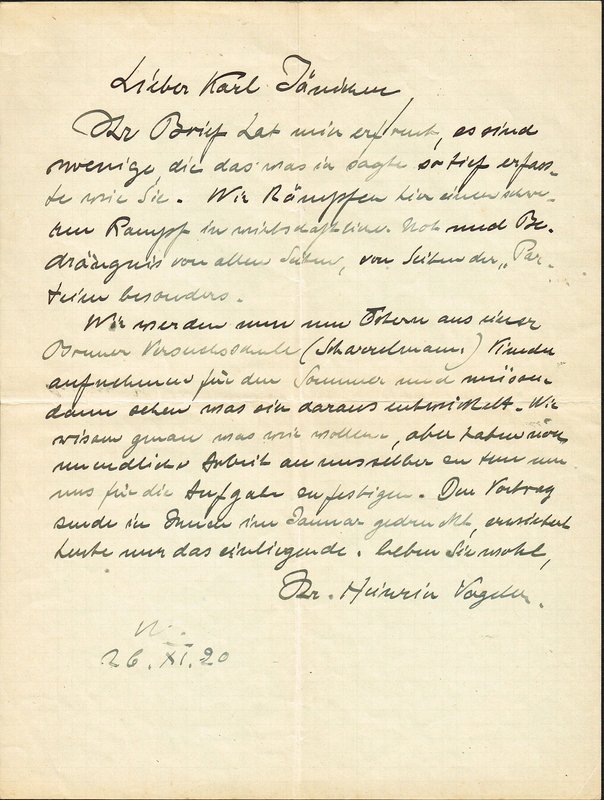 Lieber Karl Jänicken
Ihr Brief hat mich erfreut, es sind
wenige, die das was ich sagte so tief erfass-
te wie Sie. Wir kämpfen hier einen schwe-
ren Kampf in wirtschaftlicher Not und Be-
drängnis von allen Seiten, von Seiten der „Par-
teien besonders.
Wir werden nun um Ostern aus einer
Bremer Versuchsschule (Scharrelmann) Kinder
aufnehmen für den Sommer und müssen
dann sehen was sich daraus entwickelt. Wir
wissen genau was wir wollen, aber haben noch
unendliche Arbeit an uns selber zu tun um
uns für die Aufgabe zu festigen. Den Vortrag
sende ich Ihnen im Januar gedruckt,
heute nur das einliegende. Leben Sie wohl,
Ihr. Heinrich Vogeler.
W.
26.XI.20